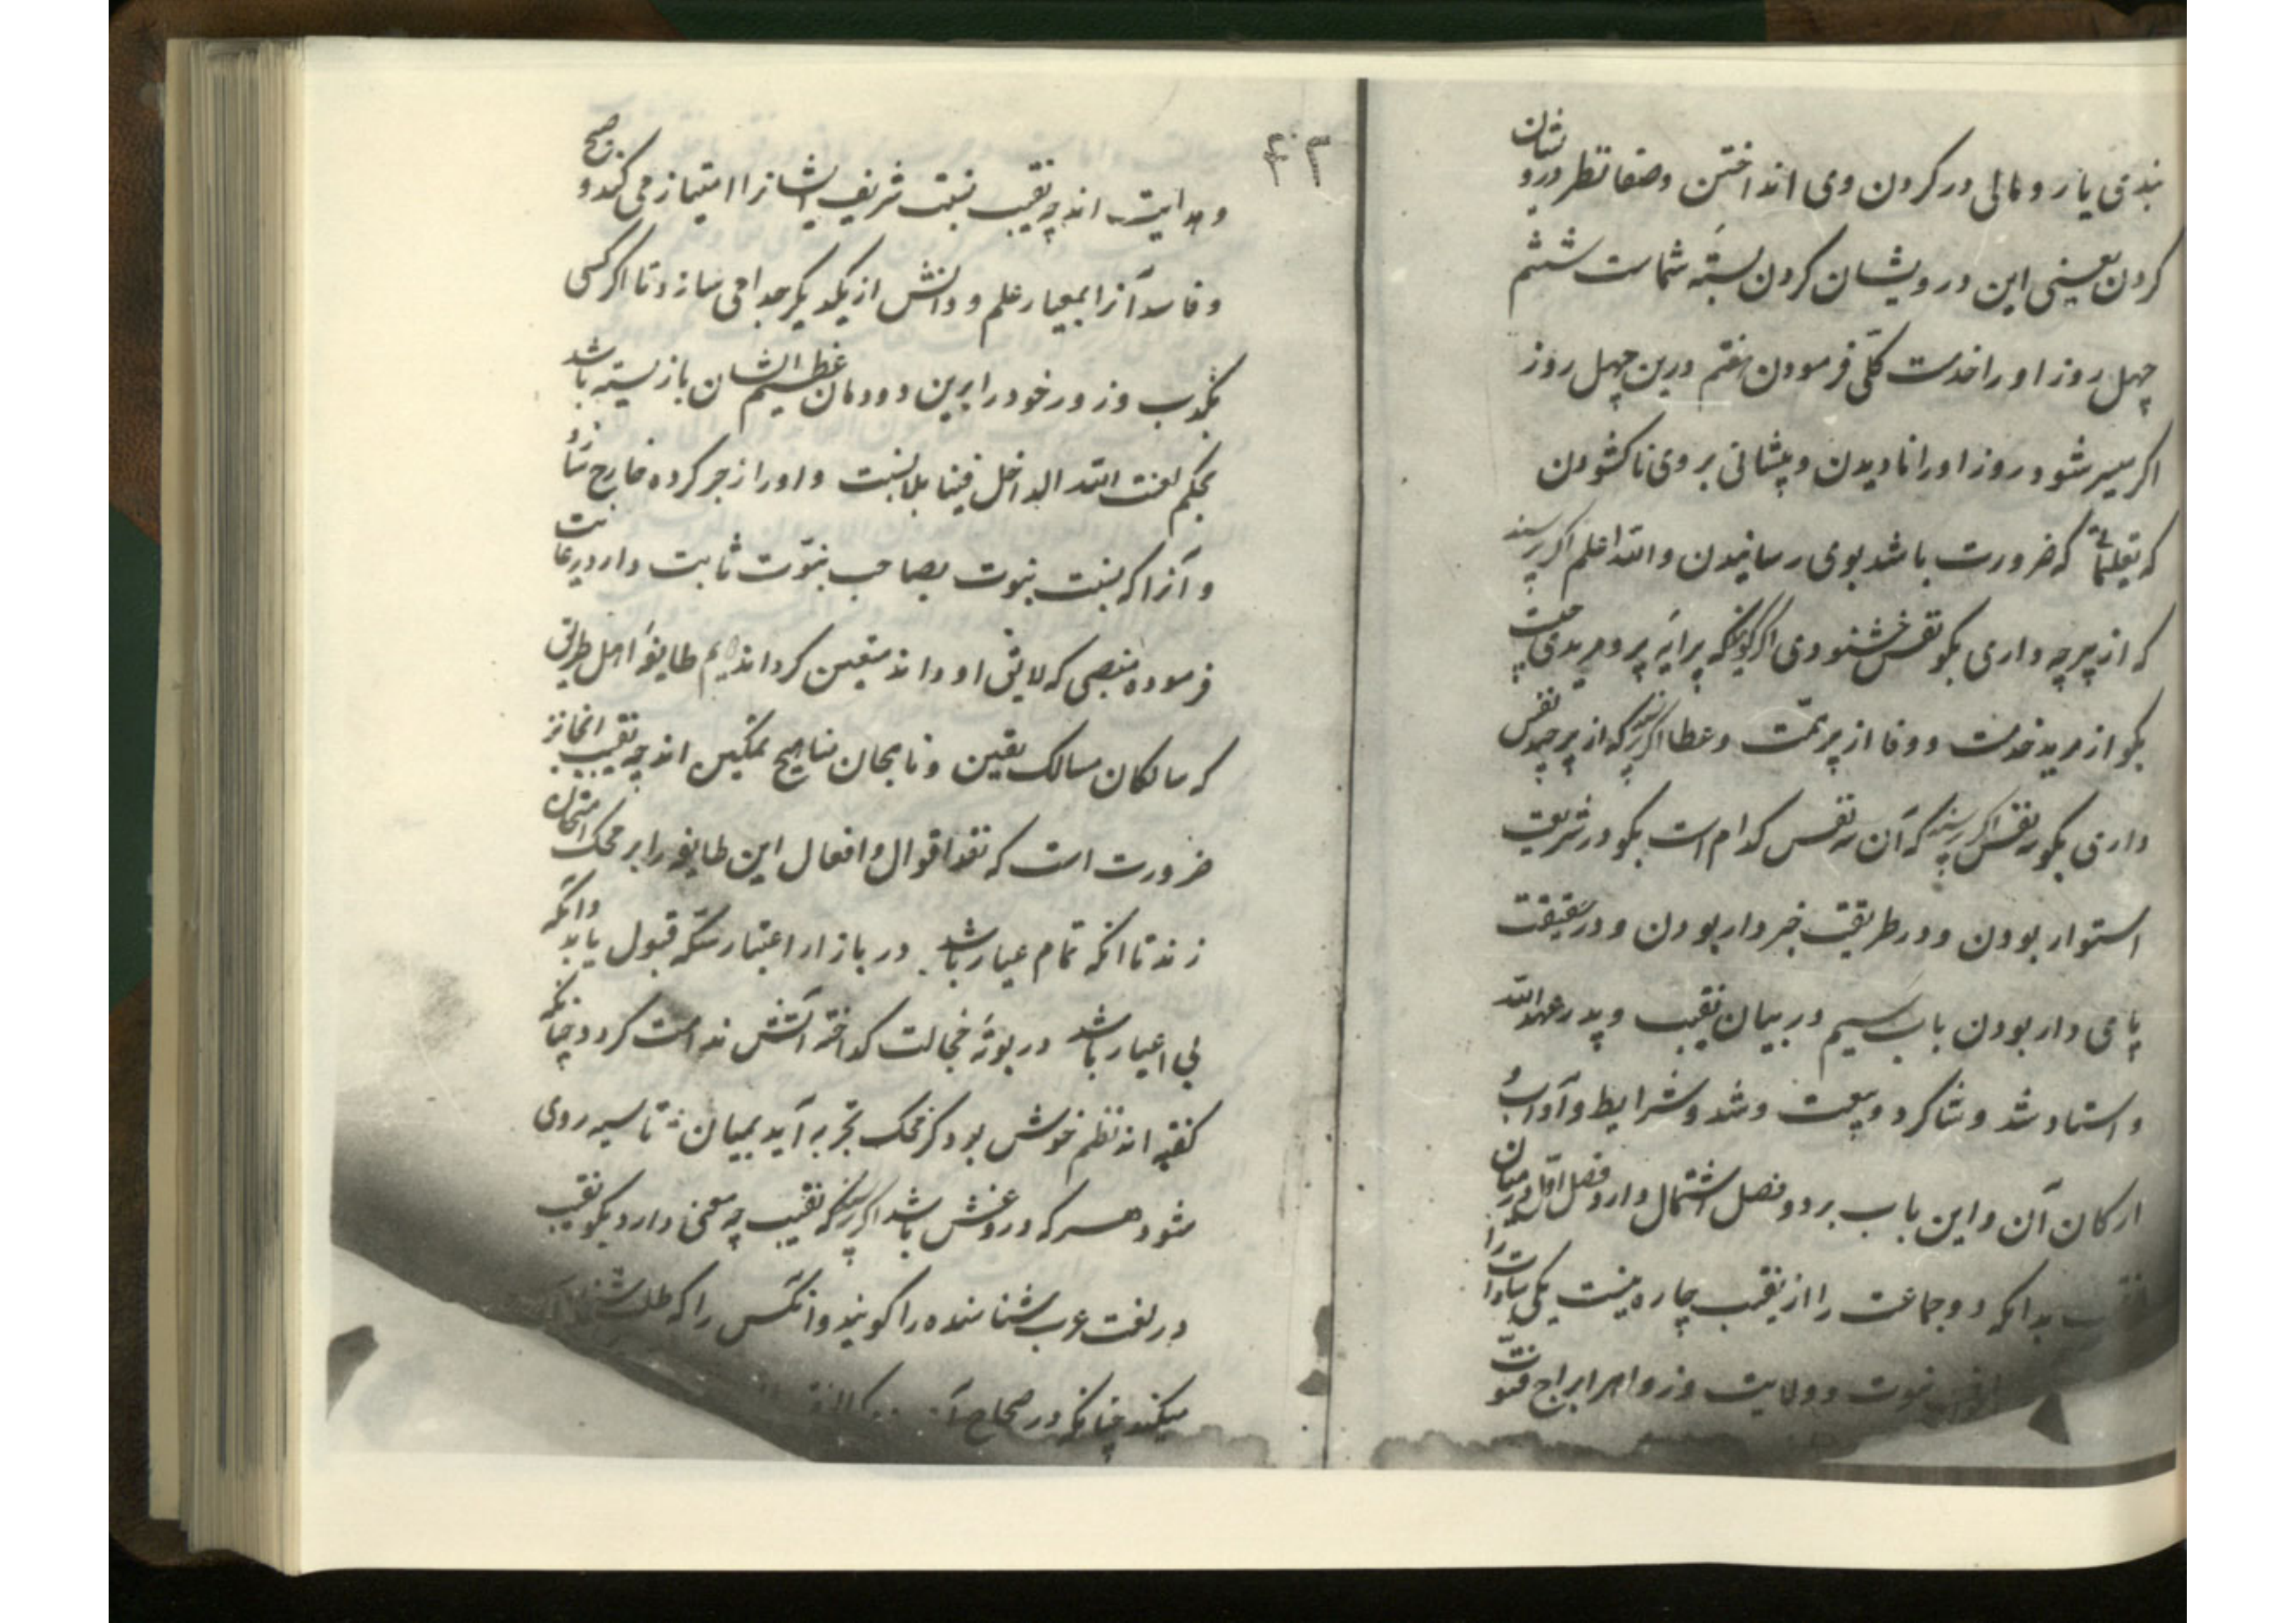 بندی یا رومالی در کردن وی انداختن وصفا نظر درو نشان
کردن یعینی این درویشان کردن بسته شماست ششم
چهل روز او را خدمت کلی فرمودن هفتم درین چهل روز
اکر میسر شود روز او را نادیدن و پیشانی بروی ناکشودن
که تعلیماتی که ضرورت باشد بوی رسانیدن والله اعلم اکر پرسند
که از پیر چه داری بکو نفس خشنودی اکر کویند که پرایه پیر و مرید چیست
بکو از مرید خدمت و وفا از پیر همت و عطا اکر پرسند که از پیر چند نفس
داری بکو سه نفس اکر پرسند که آن سه نفس کدام است بکو در شریعت
استوار بودن و در طریقت خبردار بودن و در حقیقت
پای دار بودن باب سیم در بیان نقیب و پدر عهد الله
و استاد شد و شاکرد و بیعت و شد و شرایط و آداب و
ارکان آن و این باب بر دو فصل اشتمال دارد فصل اول در بیان
نقیب بدانکه دو جماعت را از نقیب چاره نیست یکی سادات را
نبوت و ولایت و زواهر ابراج فتوت
۴۰۲
و هدایت اند چه نقیب نسبت شریف ایشانرا امتیاز می کند و صحیح
و فاسد آنرا بمعیار علم و دانش از یکدیکر جدا می سازد تا اکر کسی
بکذب و زور خود را برین دودمان عظیم الشان باز بسته باشد
بحکم لعنت الله الداخل فینا بلا نسبت و او را زجر کرده خارج سازد
و آنرا که نسبت نبوت بصاحب نبوّت ثابت دارد رعایت
فرموده منصبی که لایق او داند متعین کرداند دیم طایفهٔ اهل طریق
که سالکان مسالک یقین و ناهجان مناهج تمکین اند چه نقیب انجا نیز
ضرورت است که نقد اقوال و افعال این طایفه را بر محک امتحان
زند تا انکه تمام عیار باشد در بازار اعتبار سکه قبول یابد و انکه
بی اعیار باشد در بوتهٔ خجالت کداخته آتش ندامت کردد چنانکه
کفته اند نظم خوش بود کر محک تجربه آید بمیان تا سیه روی
شود هر که دروغش باشد اکر پرسند که نقیب چه معنی دارد بکو نقیب
در لغت عرب شناسنده را کویند و انکس را که طلب
میکند چنانکه در صحاح